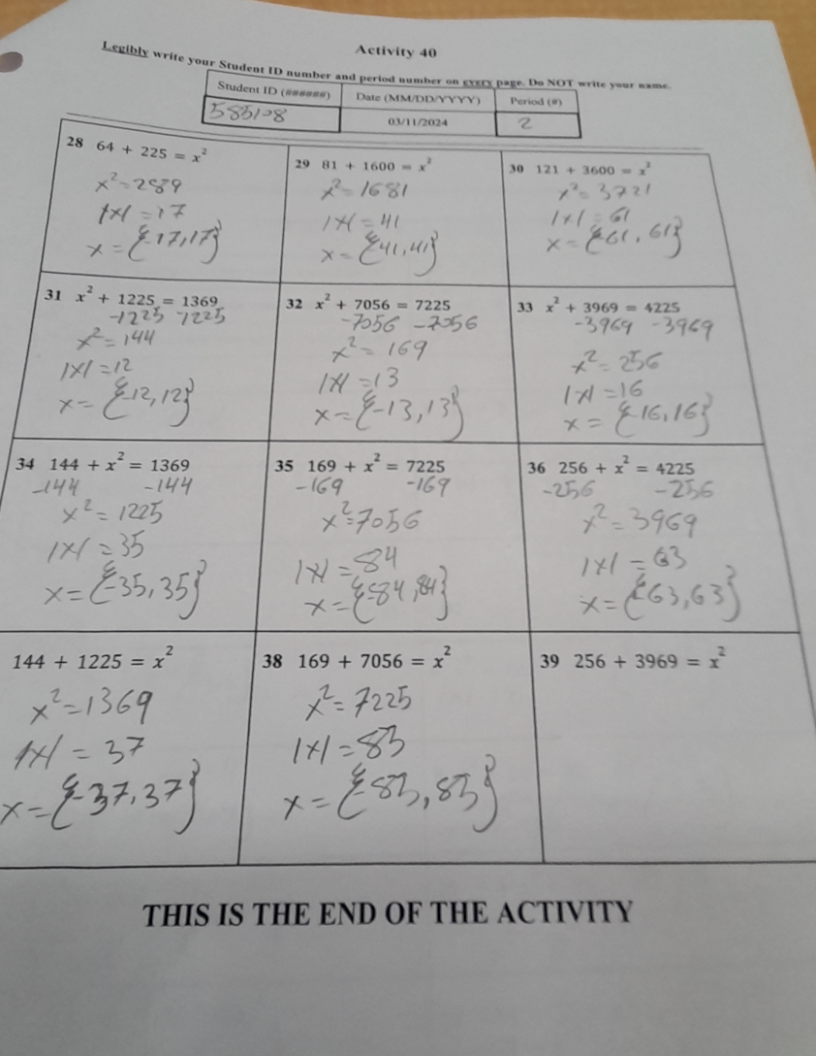 Activity 40
Legibly write your Student ID number and period number on every page. Do NOT write your name.
Student ID (######) Date (MM/DD/YYYY) Period (#)
03/11/2024 2
28 64 + 225 = x²
x²=289
|x|=17
x={-17,17}
29 81 + 1600 = x²
x²=1681
|x|=41
x={-41,41}
30 121 + 3600 = x²
x²=3721
|x|=61
x={-61,61}
31 x² + 1225 = 1369
-1225 -1225
x²=144
|x|=12
x={-12,12}
32 x² + 7056 = 7225
-7056 -7056
x²=169
|x|=13
x={-13,13}
33 x² + 3969 = 4225
-3969 -3969
x²=256
|x|=16
x={-16,16}
34 144 + x² = 1369
-144 -144
x²=1225
|x|=35
x={-35,35}
35 169 + x² = 7225
-169 -169
x²=7056
|x|=84
x={-84,84}
36 256 + x² = 4225
-256 -256
x²=3969
|x|=63
x={-63,63}
144 + 1225 = x²
x²=1369
|x|=37
x={-37,37}
38 169 + 7056 = x²
x²=7225
|x|=83
x={-83,83}
39 256 + 3969 = x²
THIS IS THE END OF THE ACTIVITY